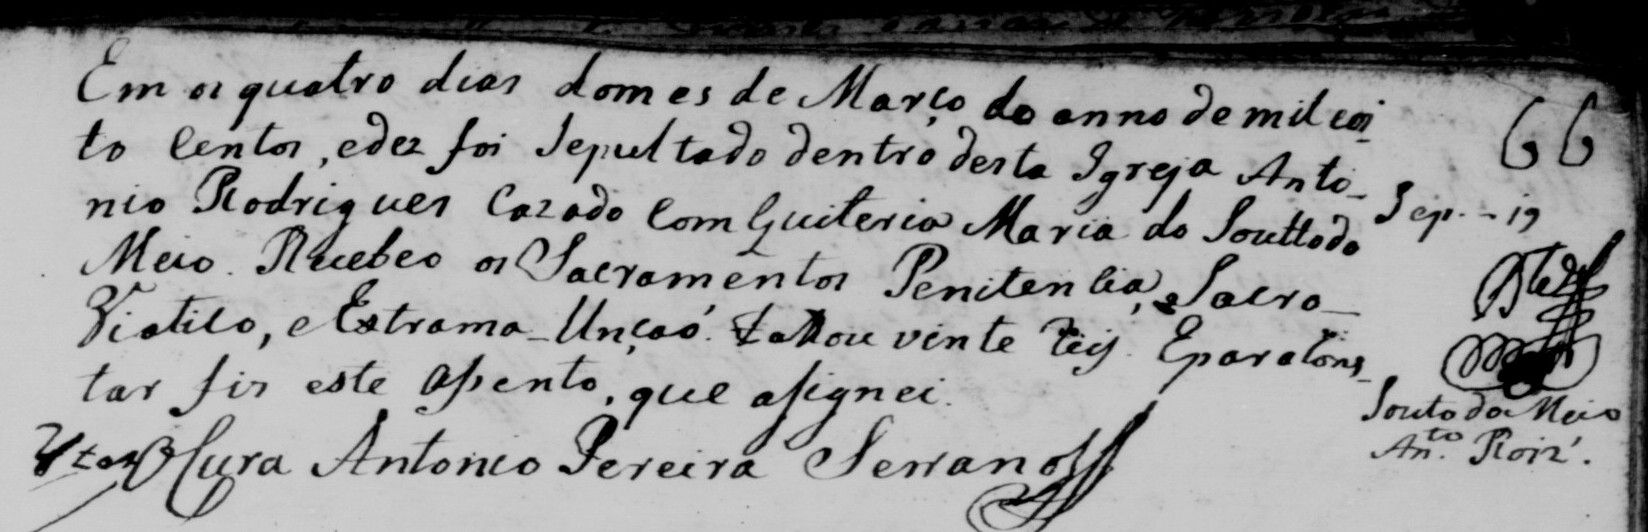 Em os quatro dias domes de Março do anno de mil eoi
to centos, edez foi sepultado dentro desta Igreja Anto-
nio Rodrigues Cazado Com Quiteria Maria do Soutto do
Meio. Recebeo os Sacramentos Penitencia, e Sacro-
Viatico, e Extrama-Unçaó. vinte Eparacons-
tar fis este Asento, que asignei.
Cura Antonio Pereira Serrano
66
Sep.
Souto do Meio
An.to Roiz'.